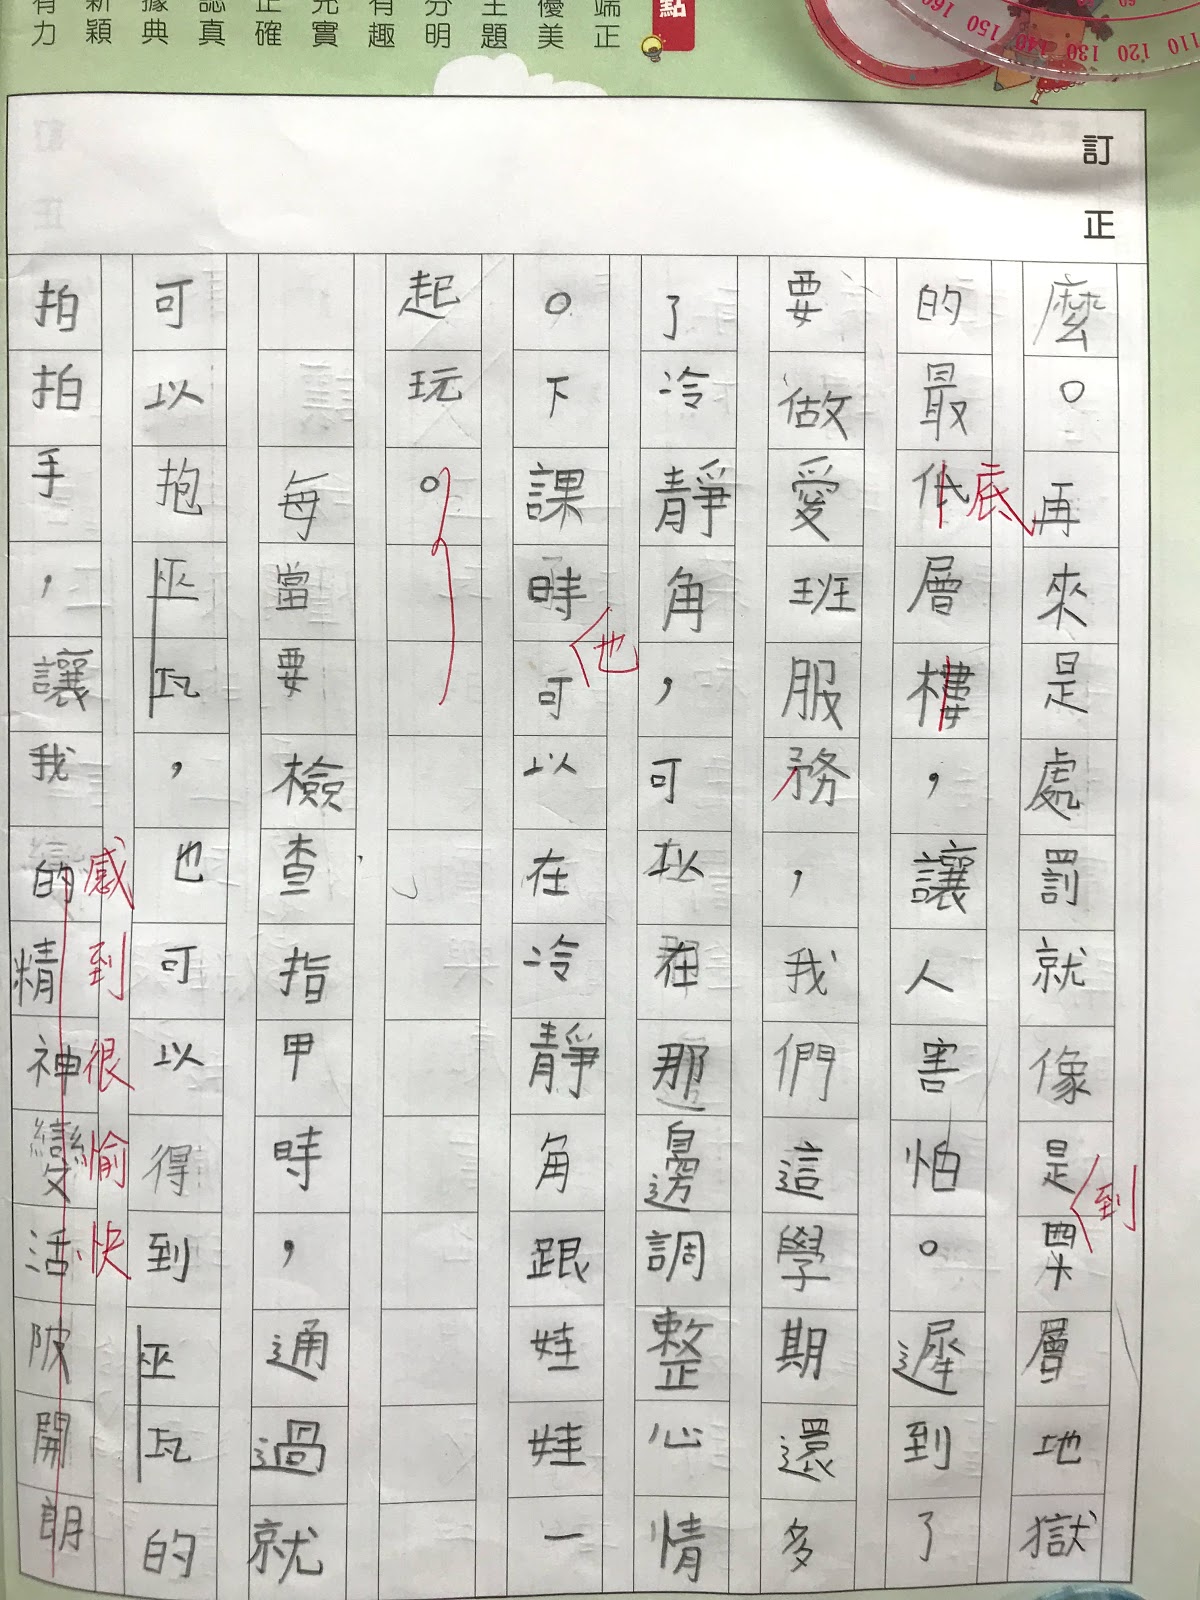 點
端正
優美
主題
分明
有趣
充實
正確
認真
據典
新穎
有力
訂正
麼。再來是處罰就像是層地獄
到
的最低層樓，讓人害怕。遲到了
底
要做愛班服務，我們這學期還多
了冷靜角，可以在那邊調整心情
。下課時可以在冷靜角跟娃娃一
也
起玩。
每當要檢查指甲時，通過就
可以抱巫瓦，也可以得到巫瓦的
感到很愉快
拍拍手，讓我的精神變活陂開朗
160 150 140 130 120 110